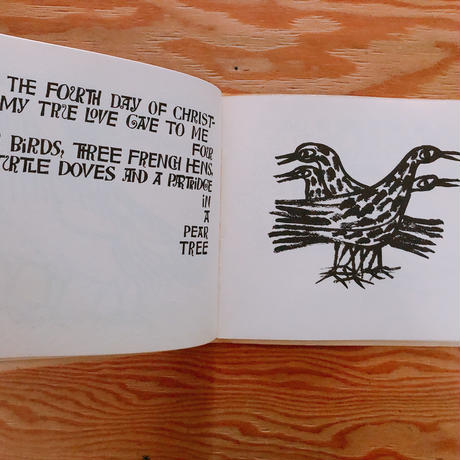 THE FOURTH DAY OF CHRIST-
MY TRUE LOVE GAVE TO ME
FOUR
BIRDS, THREE FRENCH HENS,
TURTLE DOVES AND A PARTRIDGE
IN
A
PEAR
TREE